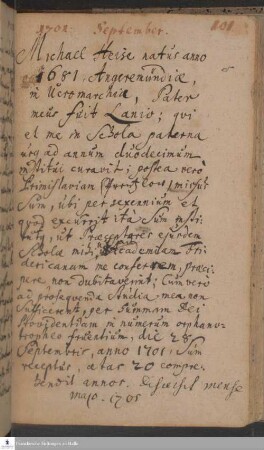 1701. September.
Michael Heise natus anno
1681. Angermündiæ,
in Ucromarchia, Pater
meus fuit Lanio; qui
et me in Schola paterna
usq ad annum duodecimum
institui curavit; postea vero
Primislaviam missus
sum, ubi per sexennium et
quod excurrit ita sum insti-
tutus, ut Præceptores ejusdem
Scholæ mihi, Academiam Fri
dericanam me conferrem, præci
pere non dubitaverint; Cum vero
ad prosequenda Studia mea non
sufficerent, per summam Dei
Providentiam in numerum orphano-
tropheo fruentium, die 28
Septembris, anno 1701. sum
receptus, ætas 20 compre-
hendit annos. discessit mense
majo. 1705